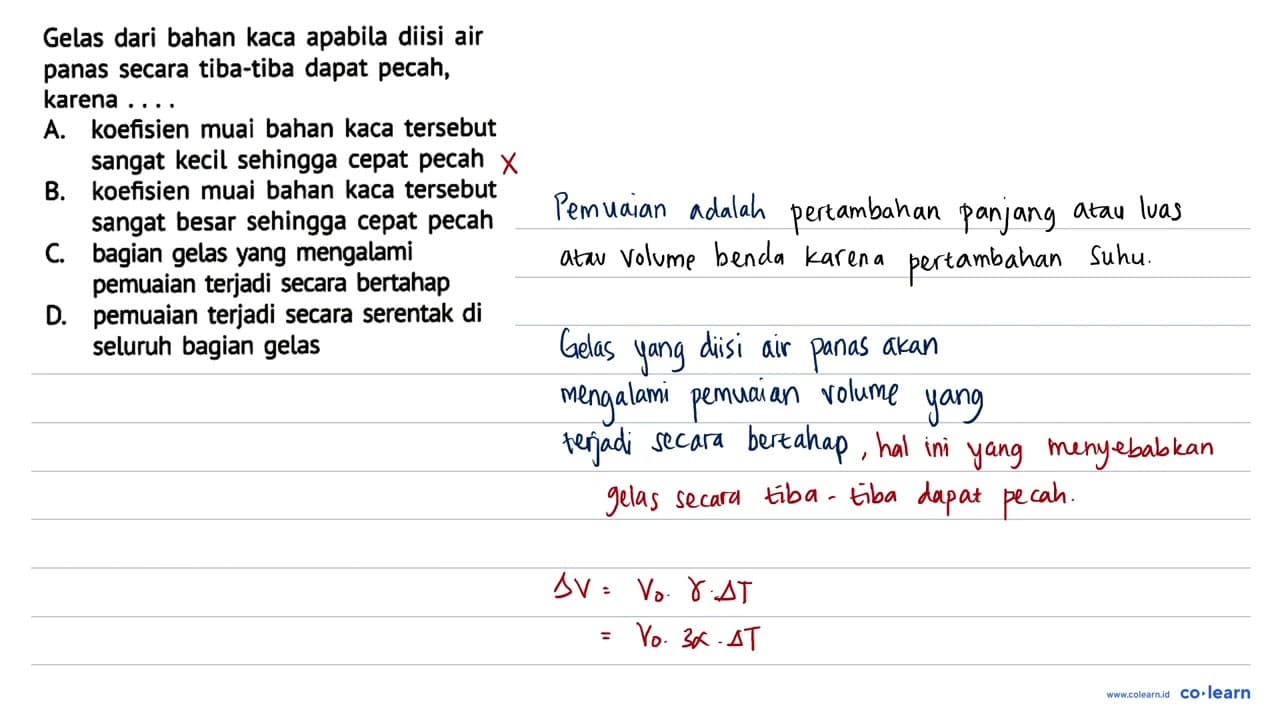 Gelas dari bahan kaca apabila diisi air
panas secara tiba-tiba dapat pecah,
karena . . . .
A. koefisien muai bahan kaca tersebut
sangat kecil sehingga cepat pecah X
B. koefisien muai bahan kaca tersebut
sangat besar sehingga cepat pecah
C. bagian gelas yang mengalami
pemuaian terjadi secara bertahap
D. pemuaian terjadi secara serentak di
seluruh bagian gelas
Pemuaian adalah pertambahan panjang atau luas
atau volume benda karena pertambahan suhu.
Gelas yang diisi air panas akan
mengalami pemuaian volume yang
terjadi secara bertahap, hal ini yang menyebabkan
gelas secara tiba-tiba dapat pecah.
ΔV = V₀. γ. ΔT
= V₀. 3α. ΔT
www.colearn.id co·learn